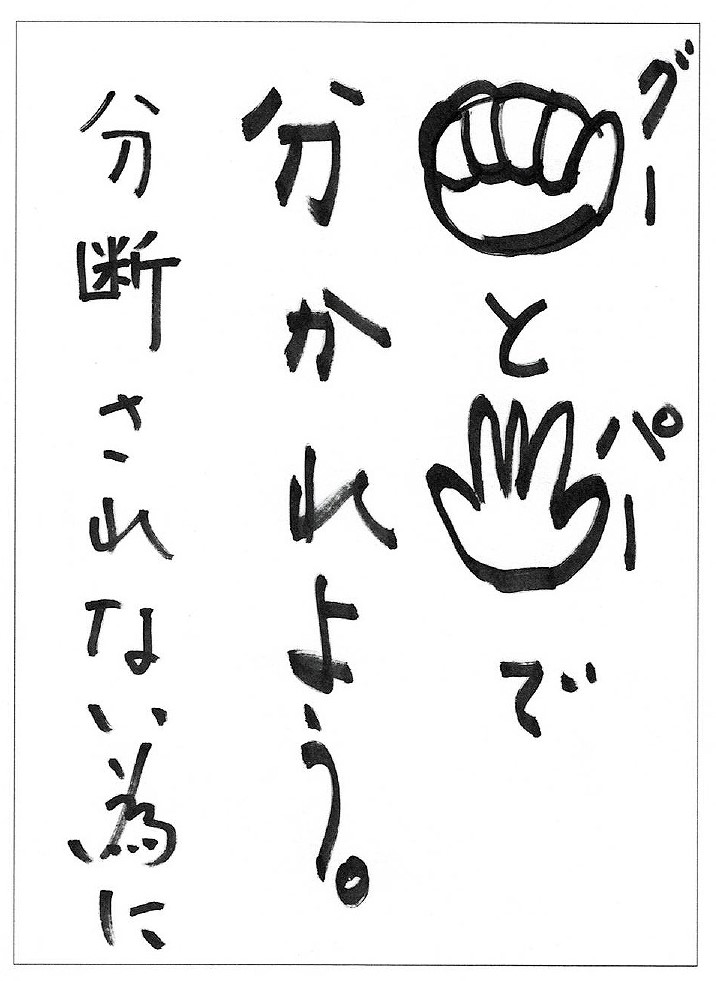 グー
と
パー
で
分かれよう。
分断されない為に